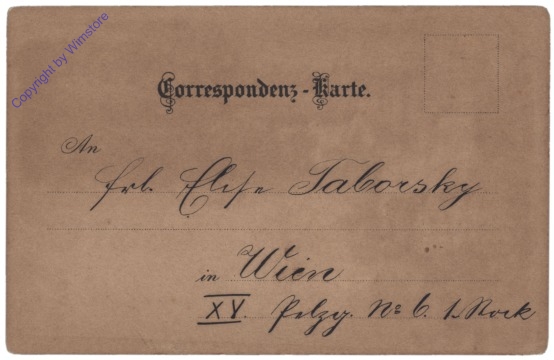 Copyright by Wimstore
Correspondenz-Karte.
An
Frl. Elise Taborsky
in Wien
XV. Pelzg. No 6. 1. Stock